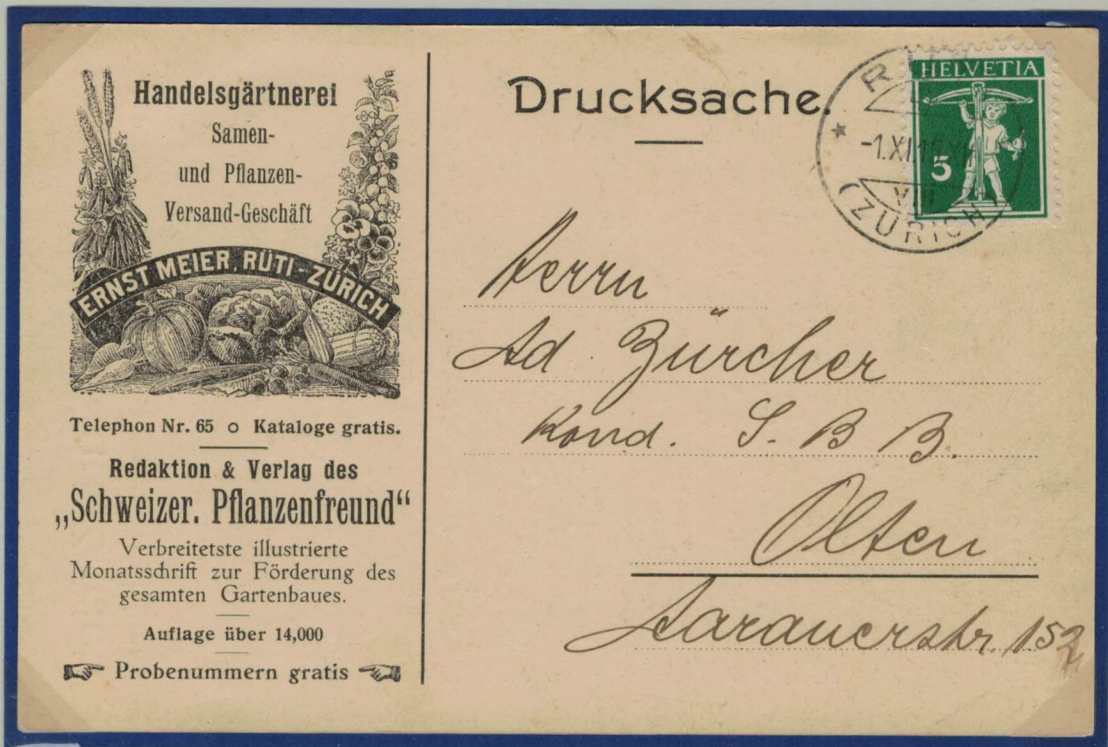 Handelsgärtnerei
Samen-
und Pflanzen-
Versand-Geschäft
ERNST MEIER, RÜTI-ZÜRICH
Telephon Nr. 65 o Kataloge gratis.
Redaktion & Verlag des
„Schweizer. Pflanzenfreund“
Verbreitetste illustrierte
Monatsschrift zur Förderung des
gesamten Gartenbaues.
Auflage über 14,000
Probenummern gratis
Drucksache.
HELVETIA
5
-1.XI.
VIII
(ZÜRICH)
Herrn
Ad. Zürcher
Kond. S. B B.
Olten
Aarauerstr. 152